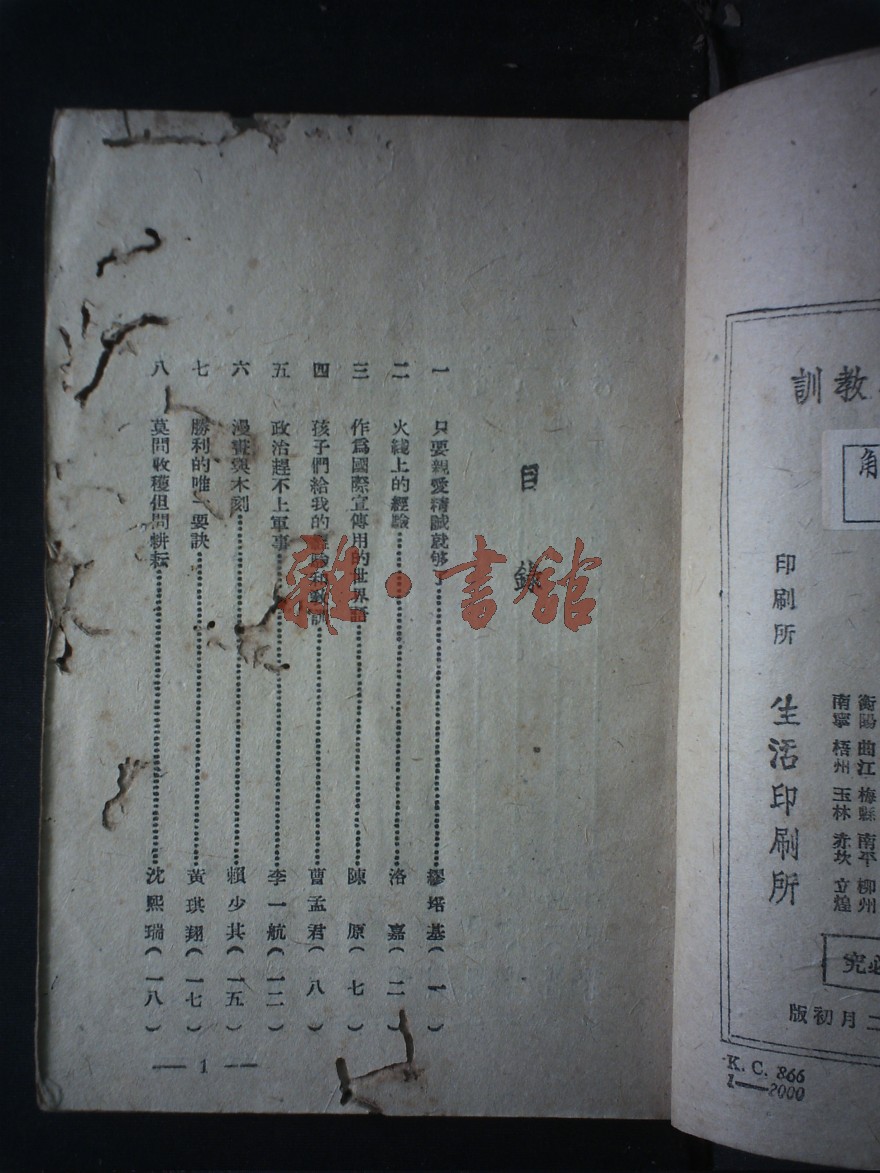 目錄
一 只要親愛精誠就够 繆培基(一)
二 火綫上的經驗 洛嘉(二)
三 作爲國際宣傳用的世界語 陳原(七)
四 孩子們給我的經驗和教訓 曹孟君(八)
五 政治趕不上軍事 李一航(一二)
六 漫畫與木刻 賴少其(一五)
七 勝利的唯一要訣 黃琪翔(一七)
八 莫問收穫但問耕耘 沈熙瑞(一八)
— 1 —
雜·書舘
教訓
角
衡陽 曲江 梅縣 南平 柳州
南寧 梧州 玉林 赤坎 立煌
印刷所 生活印刷所
必究
二月初版
K. C. 866
1—2000